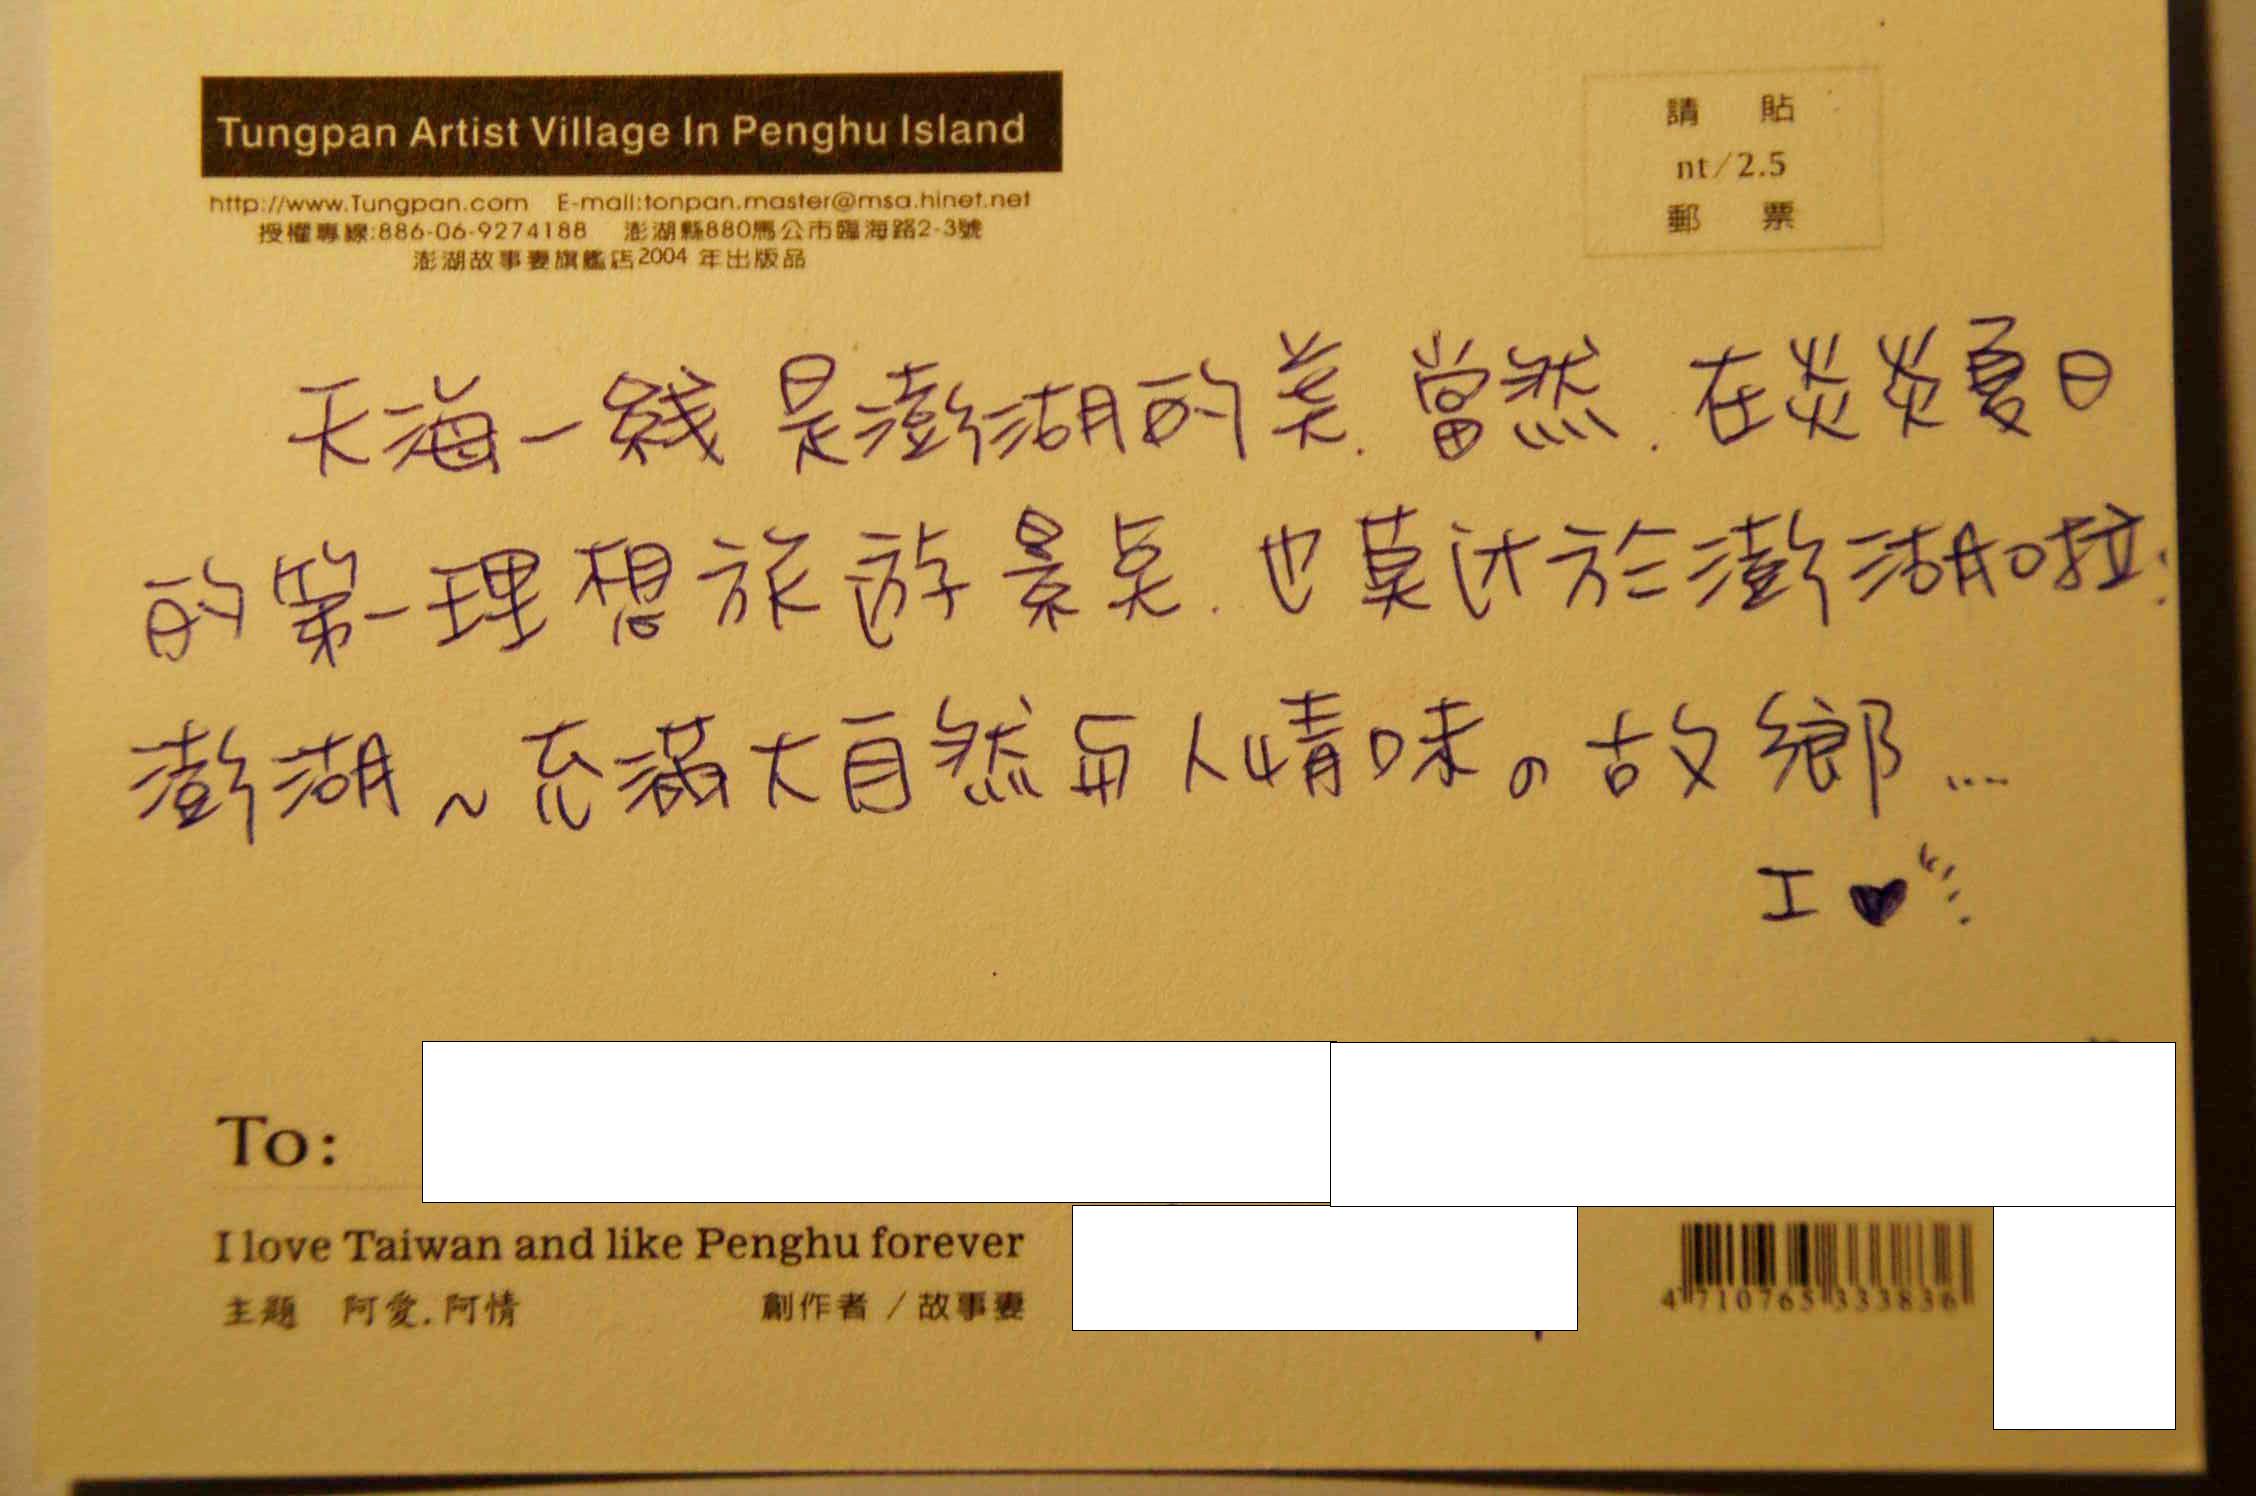 Tungpan Artist Village In Penghu Island
http://www.Tungpan.com E-mail:tonpan.master@msa.hinet.net
授權專線:886-06-9274188 澎湖縣880馬公市臨海路2-3號
澎湖故事妻旗艦店2004 年出版品
請 貼
nt/2.5
郵 票
天海一線是澎湖的美.當然.在炎炎夏日
的第一理想旅游景点.也莫过於澎湖啦.
澎湖~充滿大自然与人情味の故鄉...
I ♥
To:
I love Taiwan and like Penghu forever
主題 阿愛.阿情 創作者/故事妻
4 710765 333836